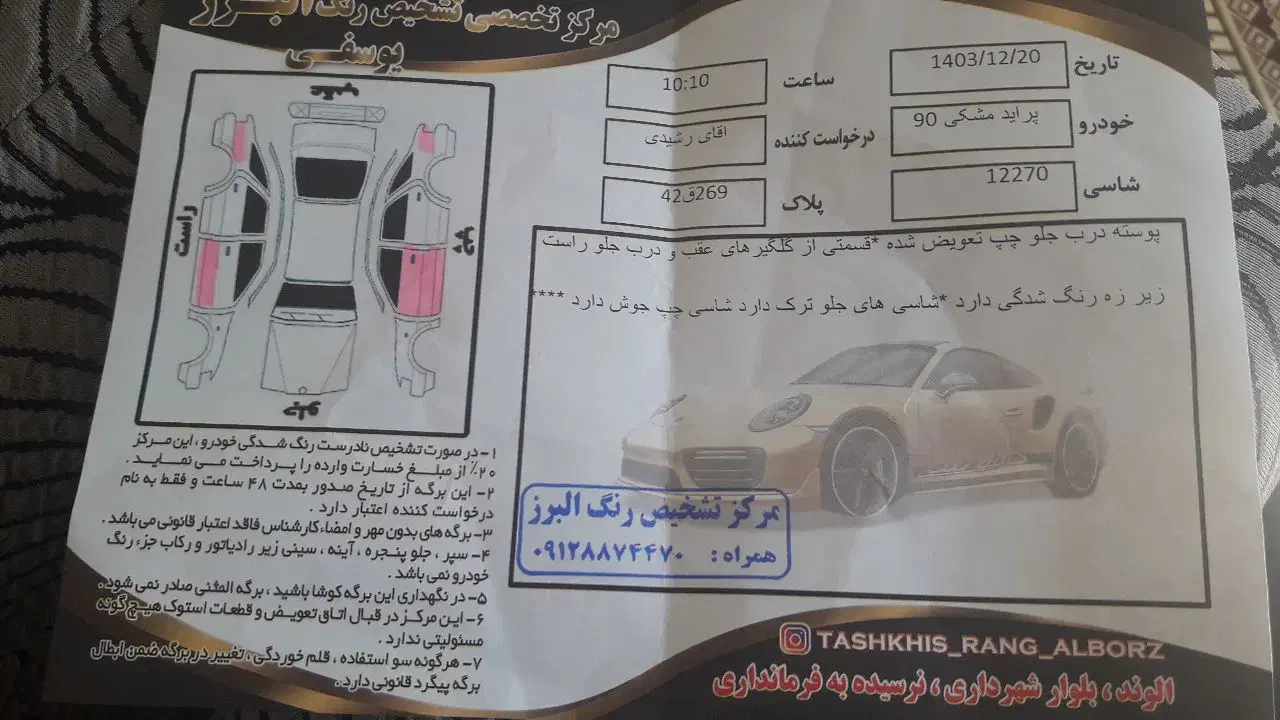 مرکز تخصصی تشخیص رنگ البرز
یوسفی
تاریخ 1403/12/20
ساعت 10:10
خودرو پراید مشکی 90
درخواست کننده اقای رشیدی
شاسی 12270
پلاک 269ق42
پوسته درب جلو چپ تعویض شده *قسمتی از گلگیرهای عقب و درب جلو راست
زیر زه رنگ شدگی دارد *شاسی های جلو ترک دارد شاسی چپ جوش دارد ****
عقب
راست
چپ
جلو
۱- در صورت تشخیص نادرست رنگ شدگی خودرو ، این مرکز
۲۰٪ از مبلغ خسارت وارده را پرداخت می نماید .
۲- این برگه از تاریخ صدور بمدت ۴۸ ساعت و فقط به نام
درخواست کننده اعتبار دارد .
۳- برگه های بدون مهر و امضاء کارشناس فاقد اعتبار قانونی می باشد .
۴- سپر ، جلو پنجره ، آینه ، سینی زیر رادیاتور و رکاب جزء رنگ
خودرو نمی باشد .
۵- در نگهداری این برگه کوشا باشید ، برگه المثنی صادر نمی شود .
۶- این مرکز در قبال اتاق تعویض و قطعات استوک هیچ گونه
مسئولیتی ندارد .
۷- هرگونه سو استفاده ، قلم خوردگی ، تغییر در برگه ضمن ابطال
برگه پیگرد قانونی دارد .
مرکز تشخیص رنگ البرز
همراه : ۰۹۱۲۸۸۷۴۴۷۰
TASHKHIS_RANG_ALBORZ
الوند ، بلوار شهرداری ، نرسیده به فرمانداری